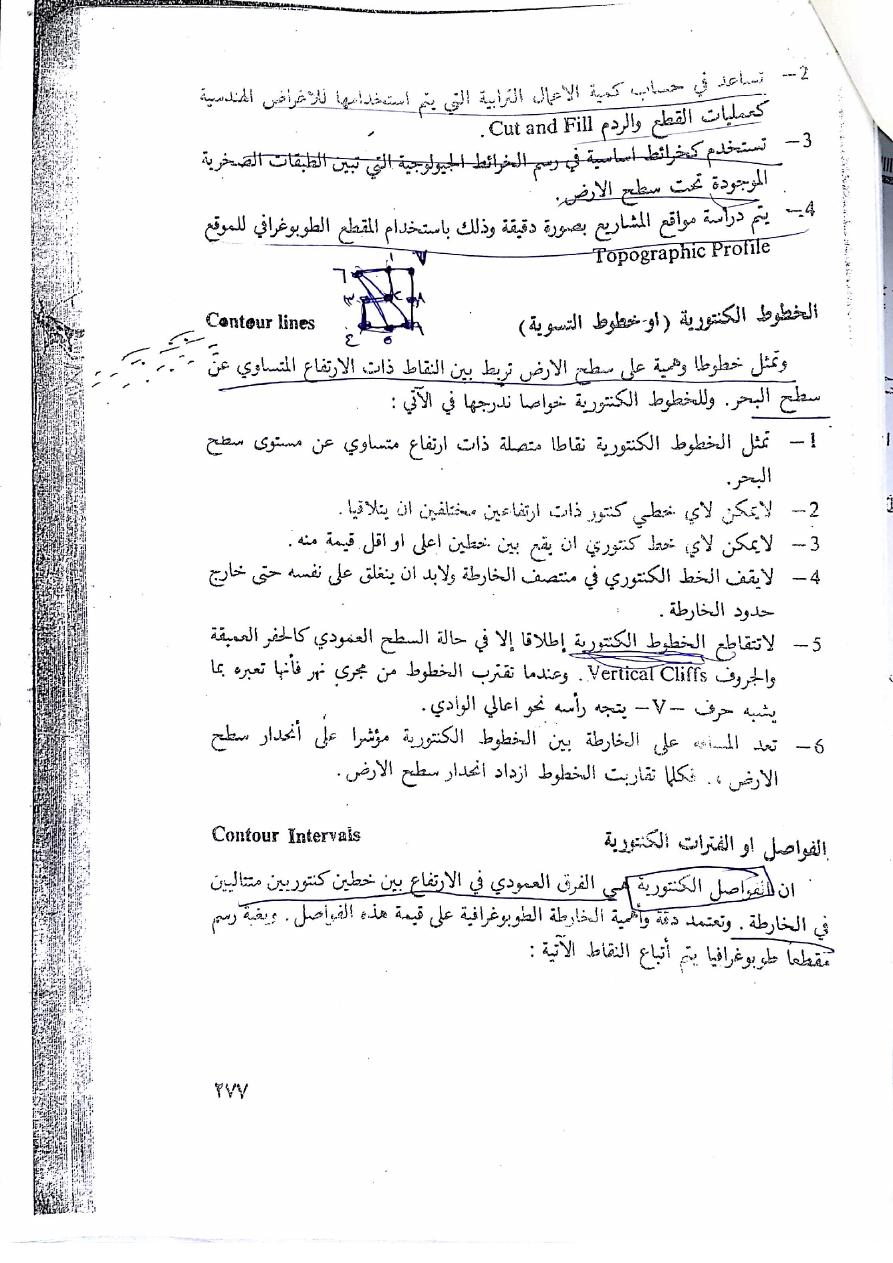 2- تساعد في حساب كمية الاعمال الترابية التي يتم استخدامها للأغراض الهندسية
كعمليات القطع والردم Cut and Fill .
3- تستخدم كخرائط اساسية في رسم الخرائط الجيولوجية التي تبين الطبقات الصخرية
الموجودة تحت سطح الارض.
4- يتم دراسة مواقع المشاريع بصورة دقيقة وذلك باستخدام المقطع الطوبوغرافي للموقع
Topographic Profile
١ ٧
٦
٣ ٢ ٨
٤ ٥ ٩
الخطوط الكنتورية (او خطوط التسوية) Contour lines
وتمثل خطوطا وهمية على سطح الارض تربط بين النقاط ذات الارتفاع المتساوي عن
سطح البحر. وللخطوط الكنتورية خواصا ندرجها في الآتي :
1- تمثل الخطوط الكنتورية نقاطا متصلة ذات ارتفاع متساوي عن مستوى سطح
البحر.
2- لايمكن لاي خطي كنتور ذات ارتفاعين مختلفين ان يتلاقيا.
3- لايمكن لاي خط كنتوري ان يقع بين خطين اعلى او اقل قيمة منه.
4- لايقف الخط الكنتوري في منتصف الخارطة ولابد ان ينغلق على نفسه حتى خارج
حدود الخارطة .
5- لاتتقاطع الخطوط الكنتورية إطلاقا إلا في حالة السطح العمودي كالحفر العميقة
والجروف Vertical Cliffs . وعندما تقترب الخطوط من مجرى نهر فأنها تعبره بما
يشبه حرف -V- يتجه رأسه نحو اعالي الوادي.
6- تعد المسافة على الخارطة بين الخطوط الكنتورية مؤشرا على أنحدار سطح
الارض ، . فكلما تقاربت الخطوط ازداد انحدار سطح الارض.
الفواصل او الفترات الكنتورية Contour Intervals
ان الفواصل الكنتورية هي الفرق العمودي في الارتفاع بين خطين كنتوريين متتاليين
في الخارطة . وتعتمد دقة وأهمية الخارطة الطوبوغرافية على قيمة هذه الفواصل . وبغية رسم
مقطعا طوبوغرافيا يتم أتباع النقاط الآتية :
٢٧٧